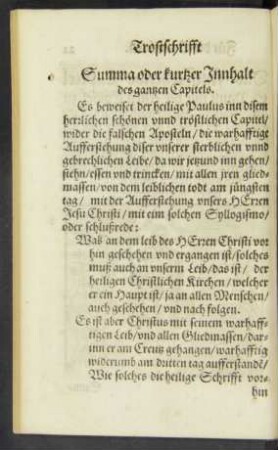 Trostschrifft
Summa oder kurtzer Innhalt
des gantzen Capitels.
Es beweiset der heilige Paulus inn disem
herzlichen schönen vnnd tröstlichen Capitel/
wider die falschen Aposteln / die warhafftige
Aufferstehung diser vnserer sterblichen vnnd
gebrechlichen Leibe / da wir jetzund inn gehen/
stehn / essen vnd trincken / mit allen jren glied-
massen / von dem leiblichen todt am jüngsten
tag / mit der Aufferstehung vnsers HErren
Jesu Christi / mit eim solchen Syllogismo/
oder schlußrede:
Was an dem leib des HErren Christi vor
hin geschehen vnd ergangen ist / solches
muß auch an vnserm Leib / das ist / der
heiligen Christlichen Kirchen / welcher
er ein Haupt ist / ja an allen Menschen/
auch geschehen / vnd nach folgen.
Es ist aber Christus mit seinem warhaff-
tigen Leib / vnd allen Gliedmassen / dar-
inn er am Creutz gehangen / warhafftig
widerumb am dritten tag aufferstandē/
Wie solches die heilige Schrifft vor-
hin